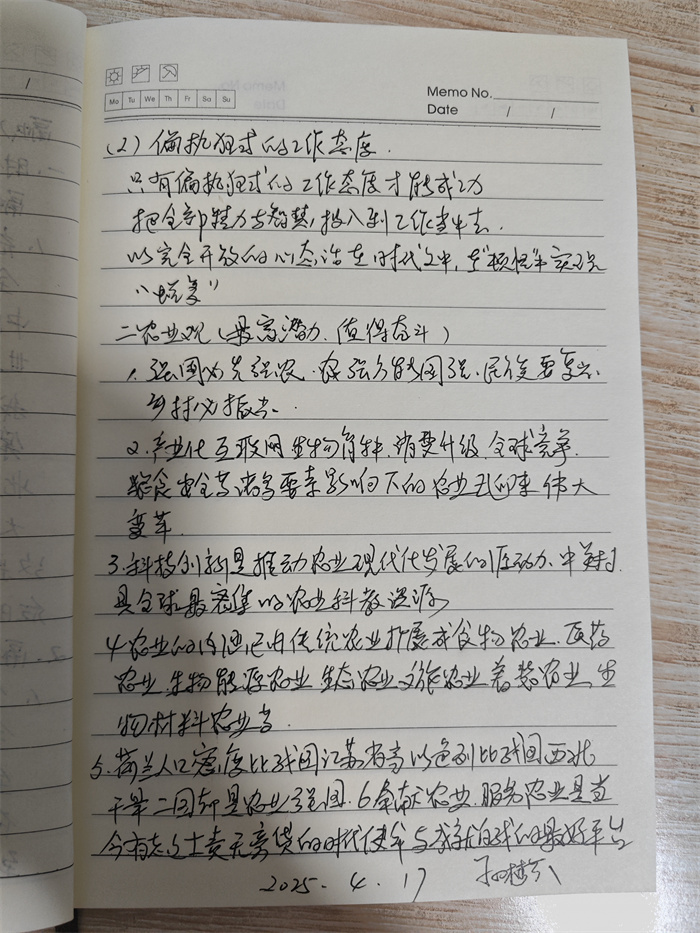 Mo Tu We Th Fr Sa Su
Memo No.
Date / /
(2) 偏执狂式的工作态度.
只有偏执狂式的工作态度才能成功
把全部精力与智慧, 投入到工作当中去.
以完全开放的心态活在时代之中, 在
二农业观 (最高潜力、值得奋斗)
1. 强国必先强农. 农强方能国强. 民族要复兴.
乡村必振兴.
2. 产业化 互联网 生物育种. 消费升级. 全球竞争.
粮食安全等诸多要素影响下的农业孔迎来伟大
变革.
3. 科技创新是推动农业现代化发展的原动力. 中美
具全球最密集的农业科教资源
4 农业的内涵已由传统农业扩展成食物农业. 医药
农业. 生物能源农业 生态农业 文旅农业 着装农业. 生
物材料农业等.
5. 荷兰人口密度比我国江苏省高 以色列比我国西北
干旱 二国却是农业强国. 6 奉献农业. 服务农业是当
今有志之士责无旁贷的时代使命与成就自我的最好平台
2025. 4. 17